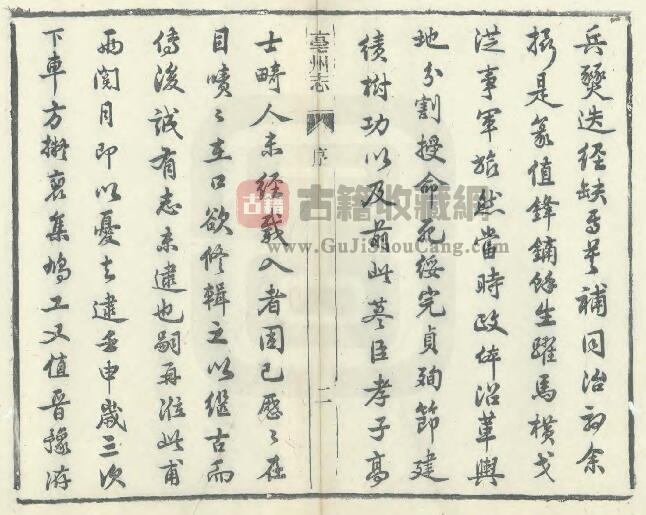 兵燹迭經缺焉莫補同治初余
攝是篆值鋒鏑餘生躍馬橫戈
從事軍旅然當時政体沿革輿
地分割授命死綏完貞殉節建
績樹功以及前此藎臣孝子高
亳州志
序
二
士畸人未經載入者固已歷歷在
目嘖嘖在口欲修輯之以繼古而
傳後誠有志未逮也嗣再涖此甫
兩閱月即以憂去逮壬申歲三次
下車方擬裒集鳩工又值晉豫游
古籍
古籍收藏網
www.GuJiShouCang.com